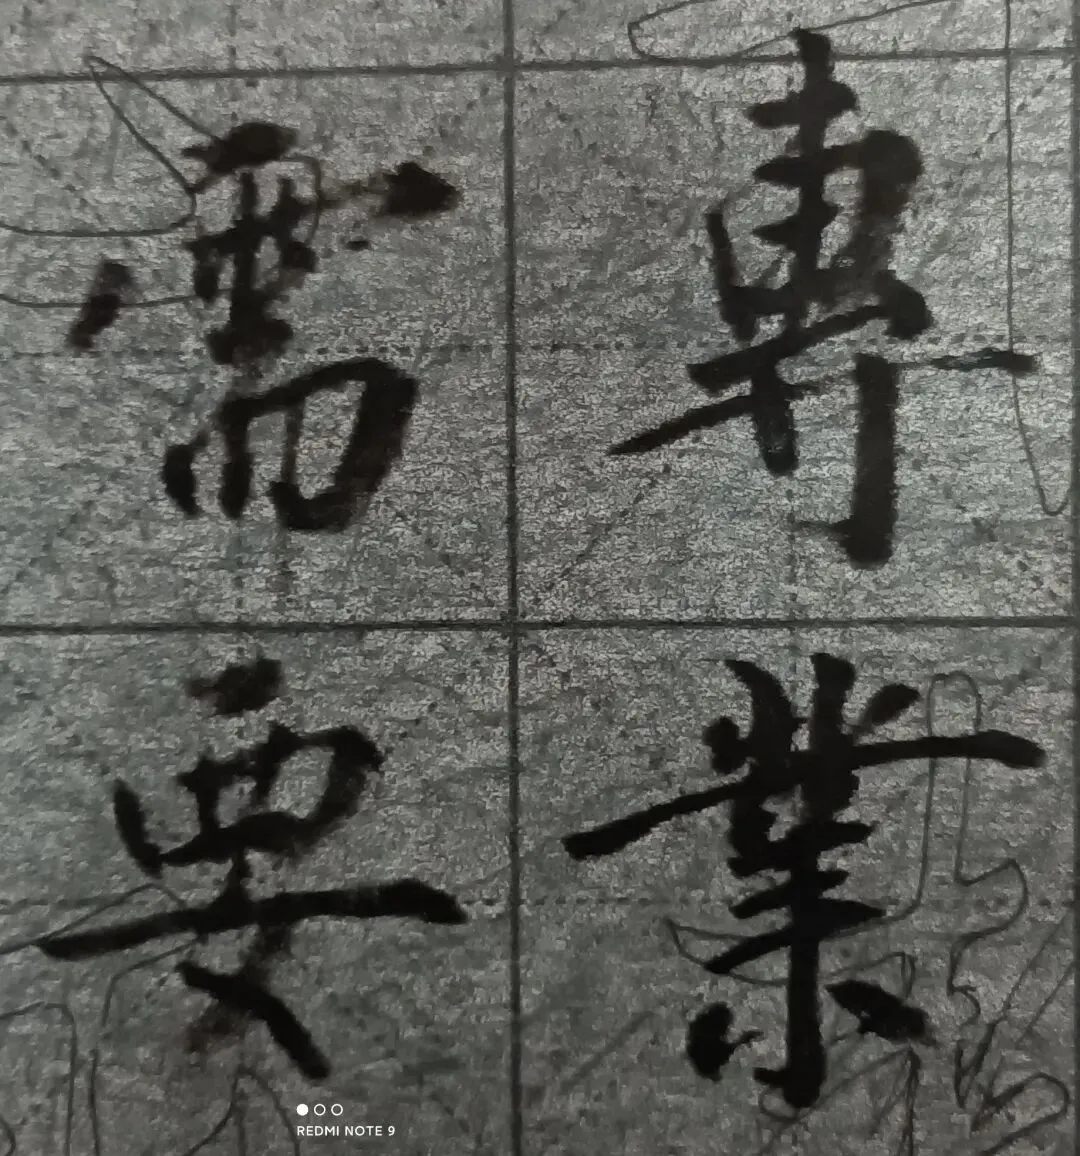 專業
需要
REDMI NOTE 9